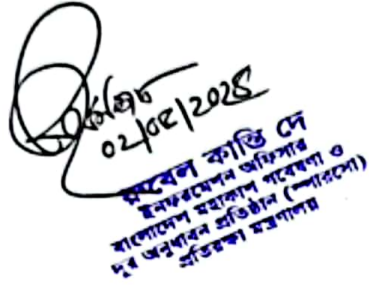 ০২/০৫/২০২৫
কান্তি দে
ইনফরমেশন অফিসার
বাংলাদেশ মহাকাশ গবেষণা ও
দূর অনুধাবন প্রতিষ্ঠান (স্পারসো)
প্রতিরক্ষা মন্ত্রণালয়